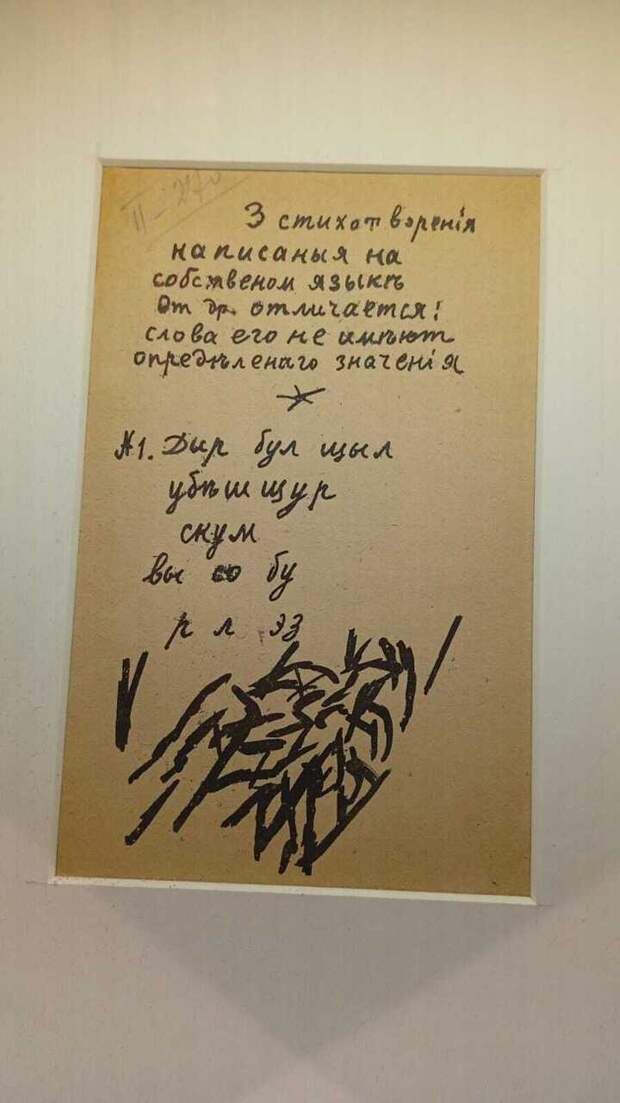 II-276
3 стихотворенiя
написаныя на
собственом языкѣ
От др. отличается:
слова его не имѣют
опредѣленаго значенiя
№1. Дыр бул щыл
убѣшщур
скум
вы со бу
р л эз